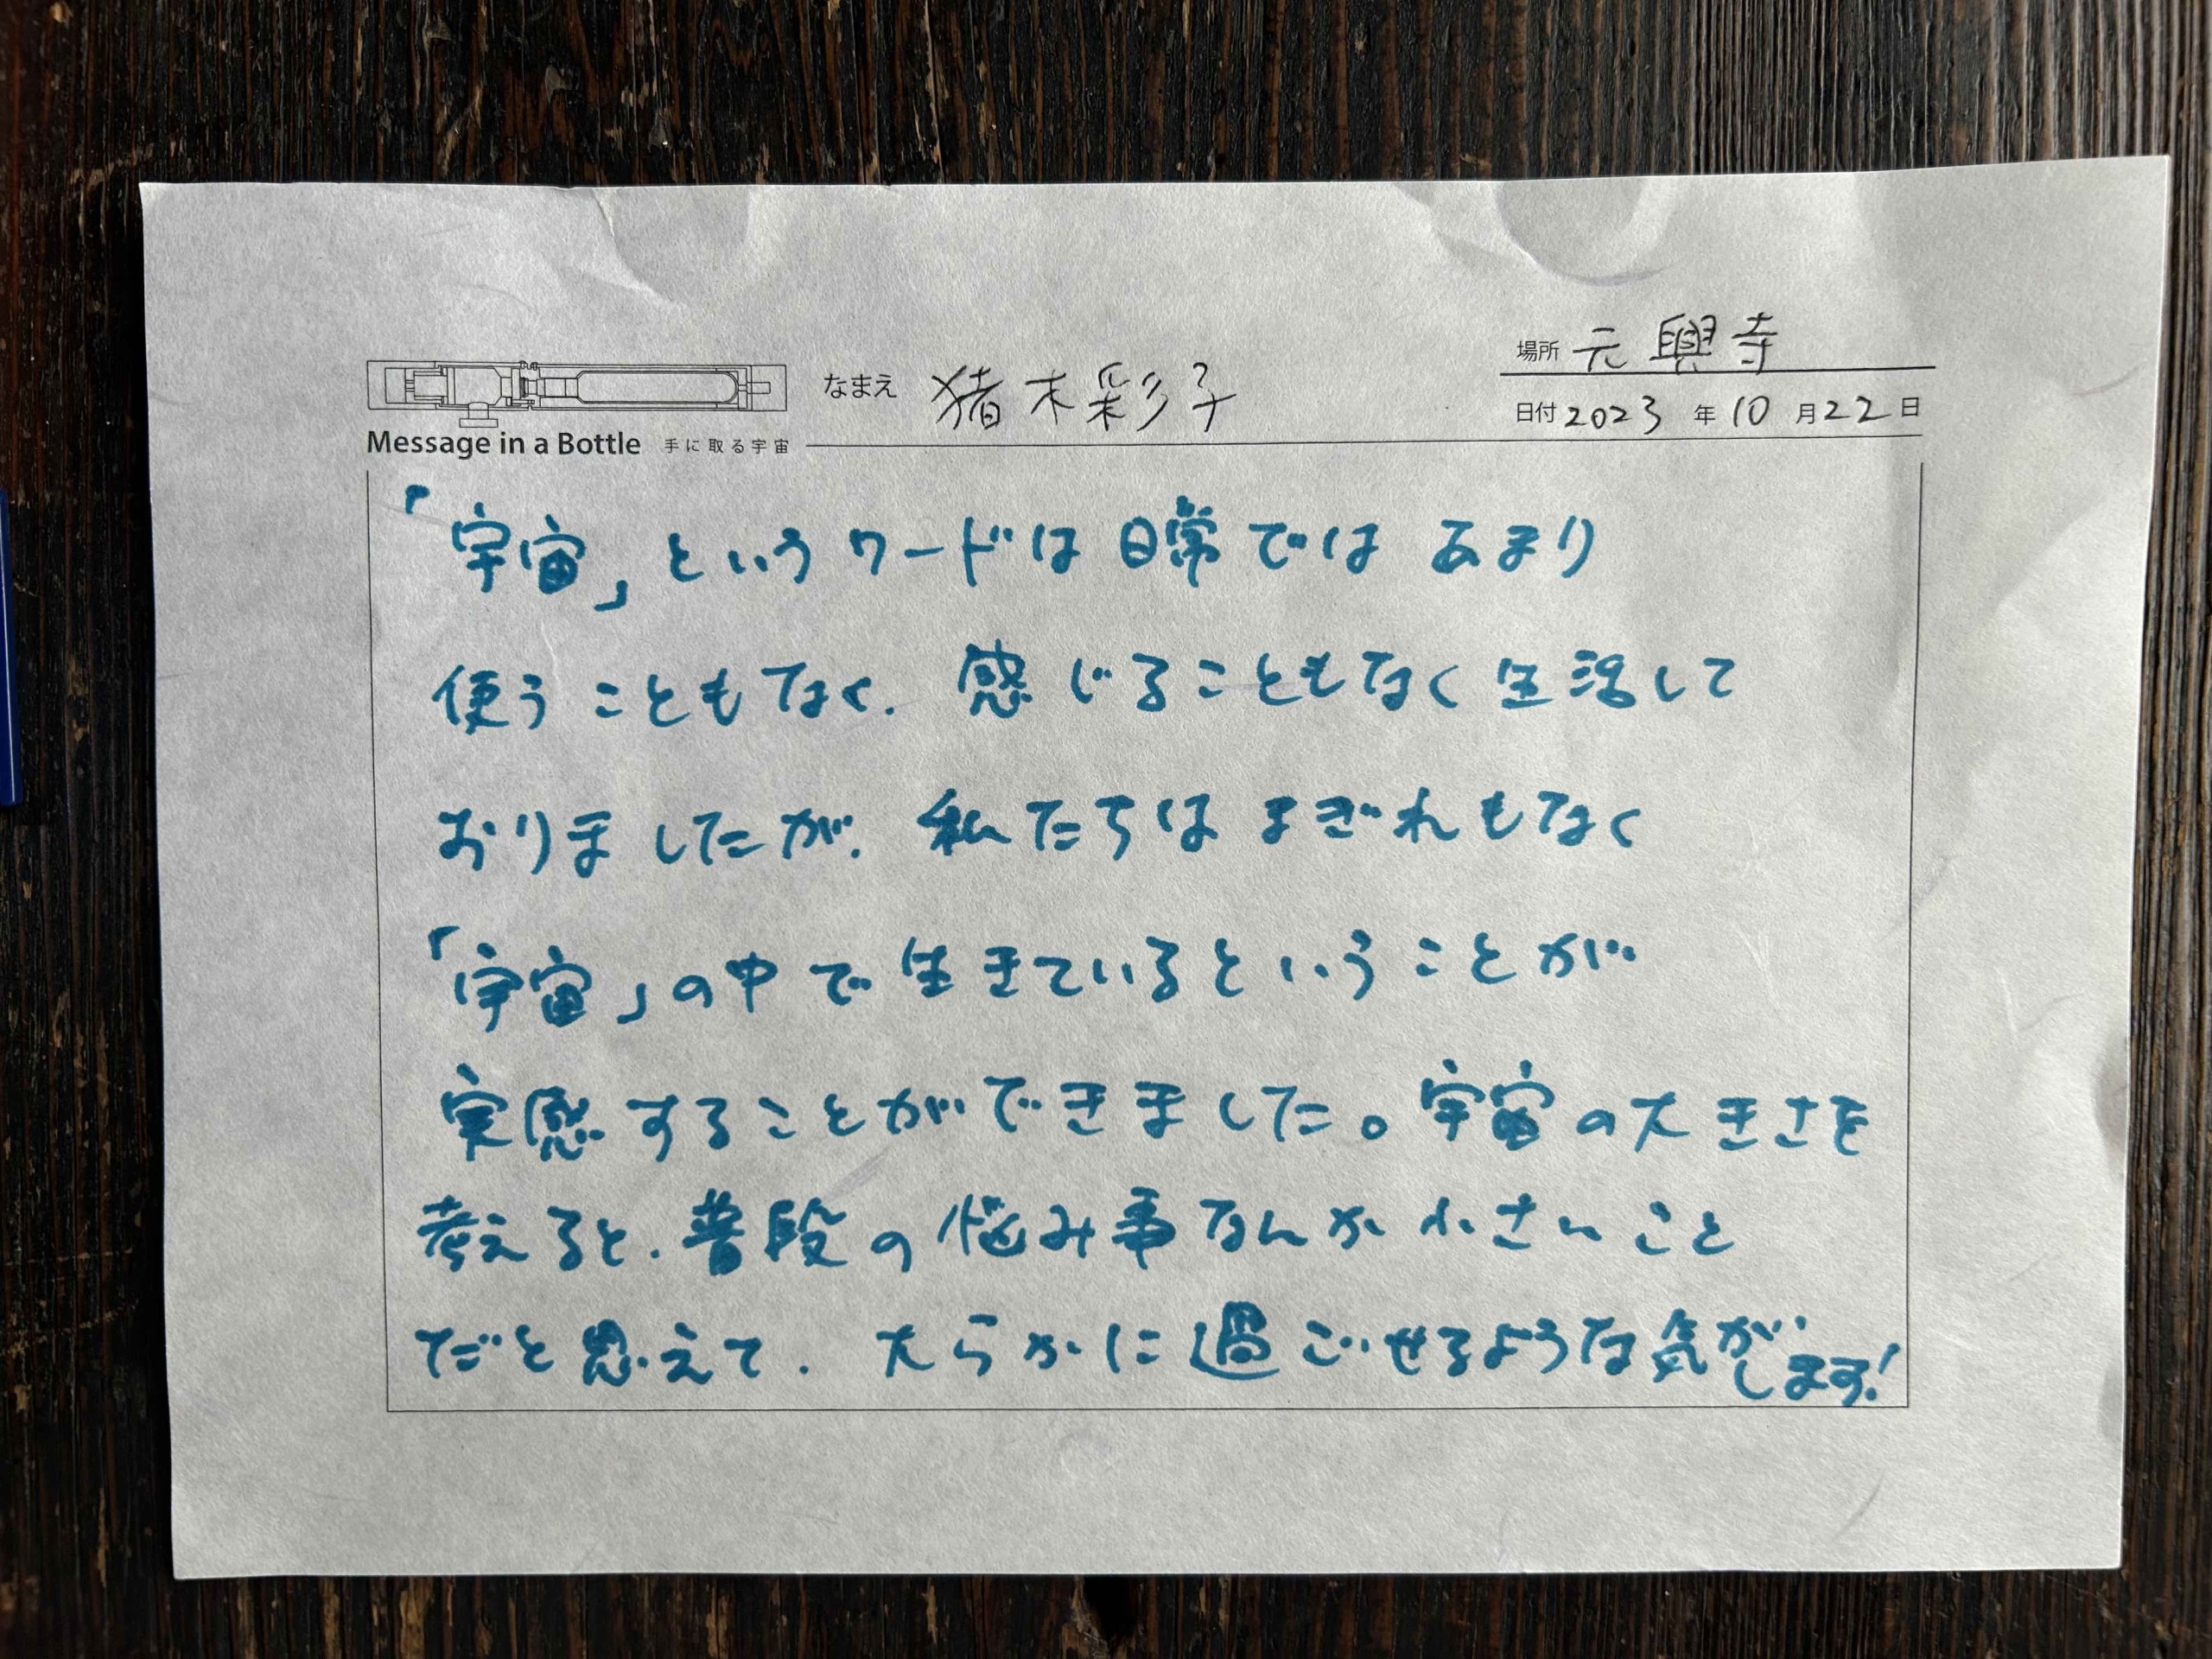 場所 元興寺
なまえ 猪木彩子
日付 2023 年 10 月 22 日
Message in a Bottle 手に取る宇宙
「宇宙」というワードは日常ではあまり
使うこともなく、感じることもなく生活して
おりましたが、私たちはまぎれもなく
「宇宙」の中で生きているということが
実感することができました。宇宙の大きさを
考えると、普段の悩み事なんか小さいこと
だと思えて、大らかに過ごせるような気がします!